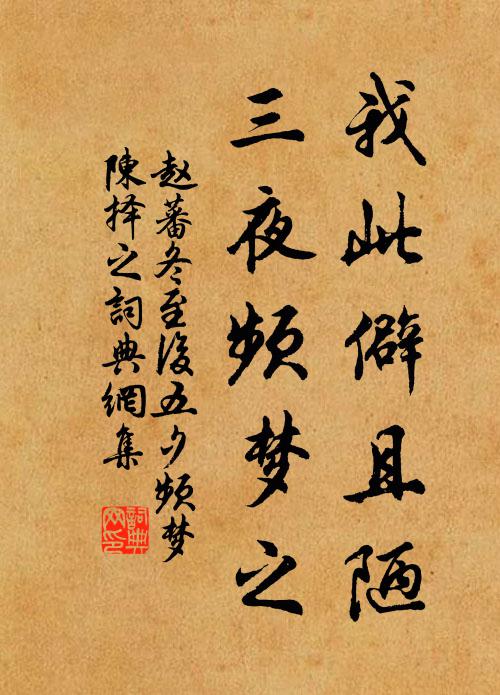 我此僻且陋
三夜频梦之
赵蕃冬至後五夕频梦
陳择之詞典網集
詞典